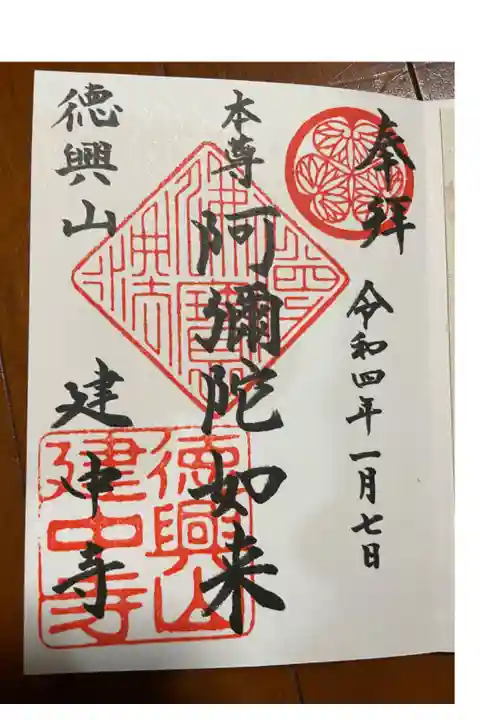 奉拝
令和四年一月七日
本尊 阿彌陀如来
徳興山 建中寺
徳興山
建中寺